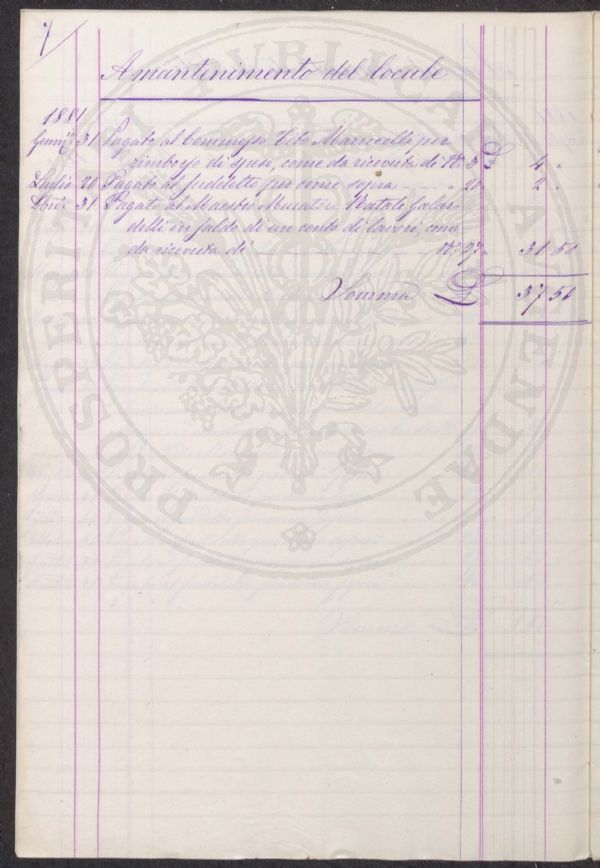 7
A mantenimento del locale
1881
31 Pagato al Commesso Tito Marucelli per
rimborso di spese, come da ricevuta di N.° 3 £ 4 "
Luglio 20 Pagato al suddetto per come sopra 20 " 2 "
31 Pagato al Maestro Muratore
in saldo di un conto di lavori, come
da ricevuta di N.° 27 " 31 50
Somma £ 37 50
PROSPERITATI PUBLICAE AUGENDAE